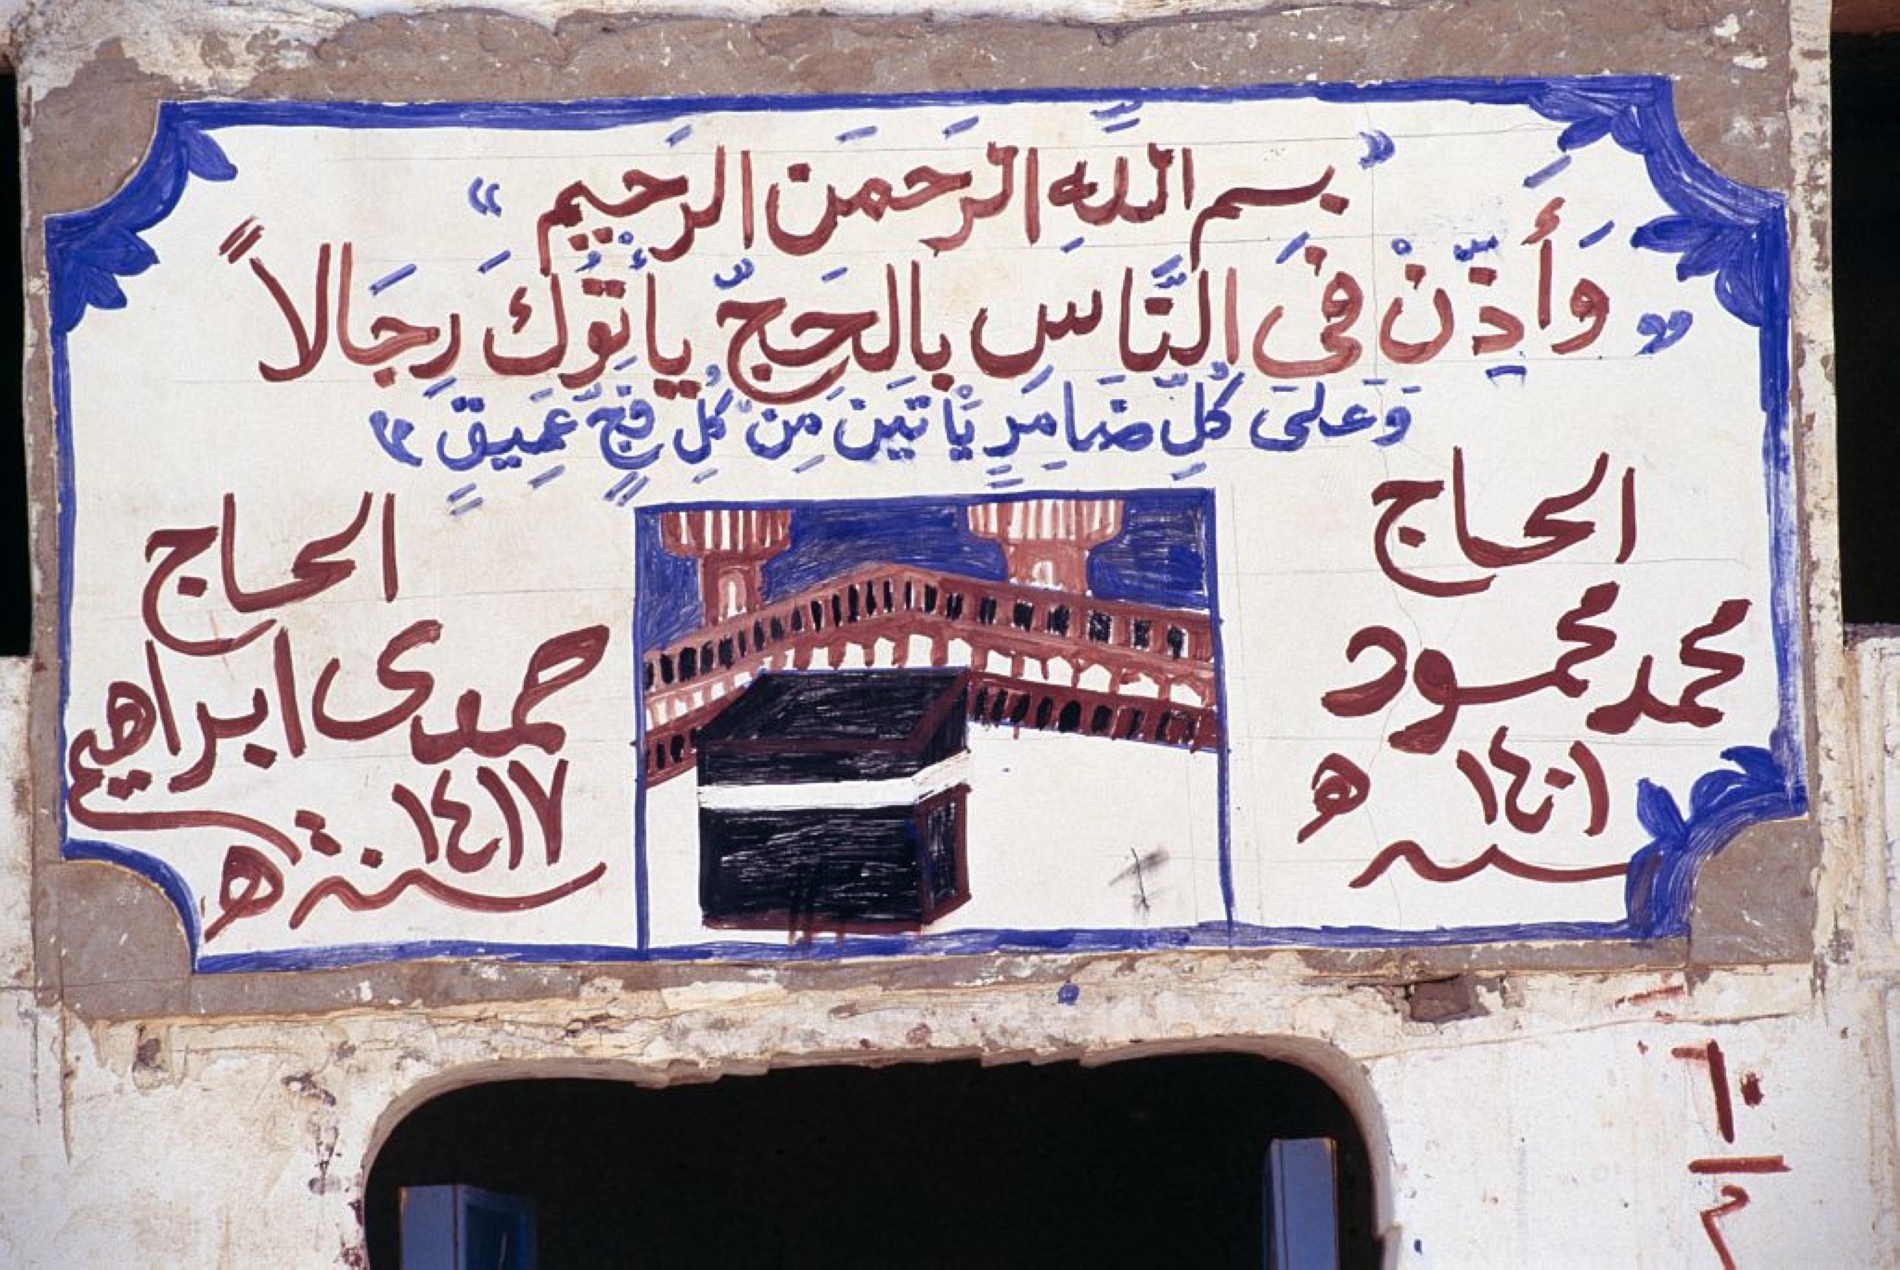 بسم اللَّهِ الرَحمَن الرَحيم
وَأَذِّنْ فى النَّاسِ بالحَجِّ يَأْتُوكَ رِجَالاً
وَعَلىَ كُلِّ ضَامِرٍ يَأْتِينَ مِنْ كُلِ فَجٍّ عَمِيقٍ
الحاج
محمد محمود
١٤٠١ هـ
سنه
الحاج
حمدى ابراهيم
١٤١٧
سنة هـ
٦٠
٢